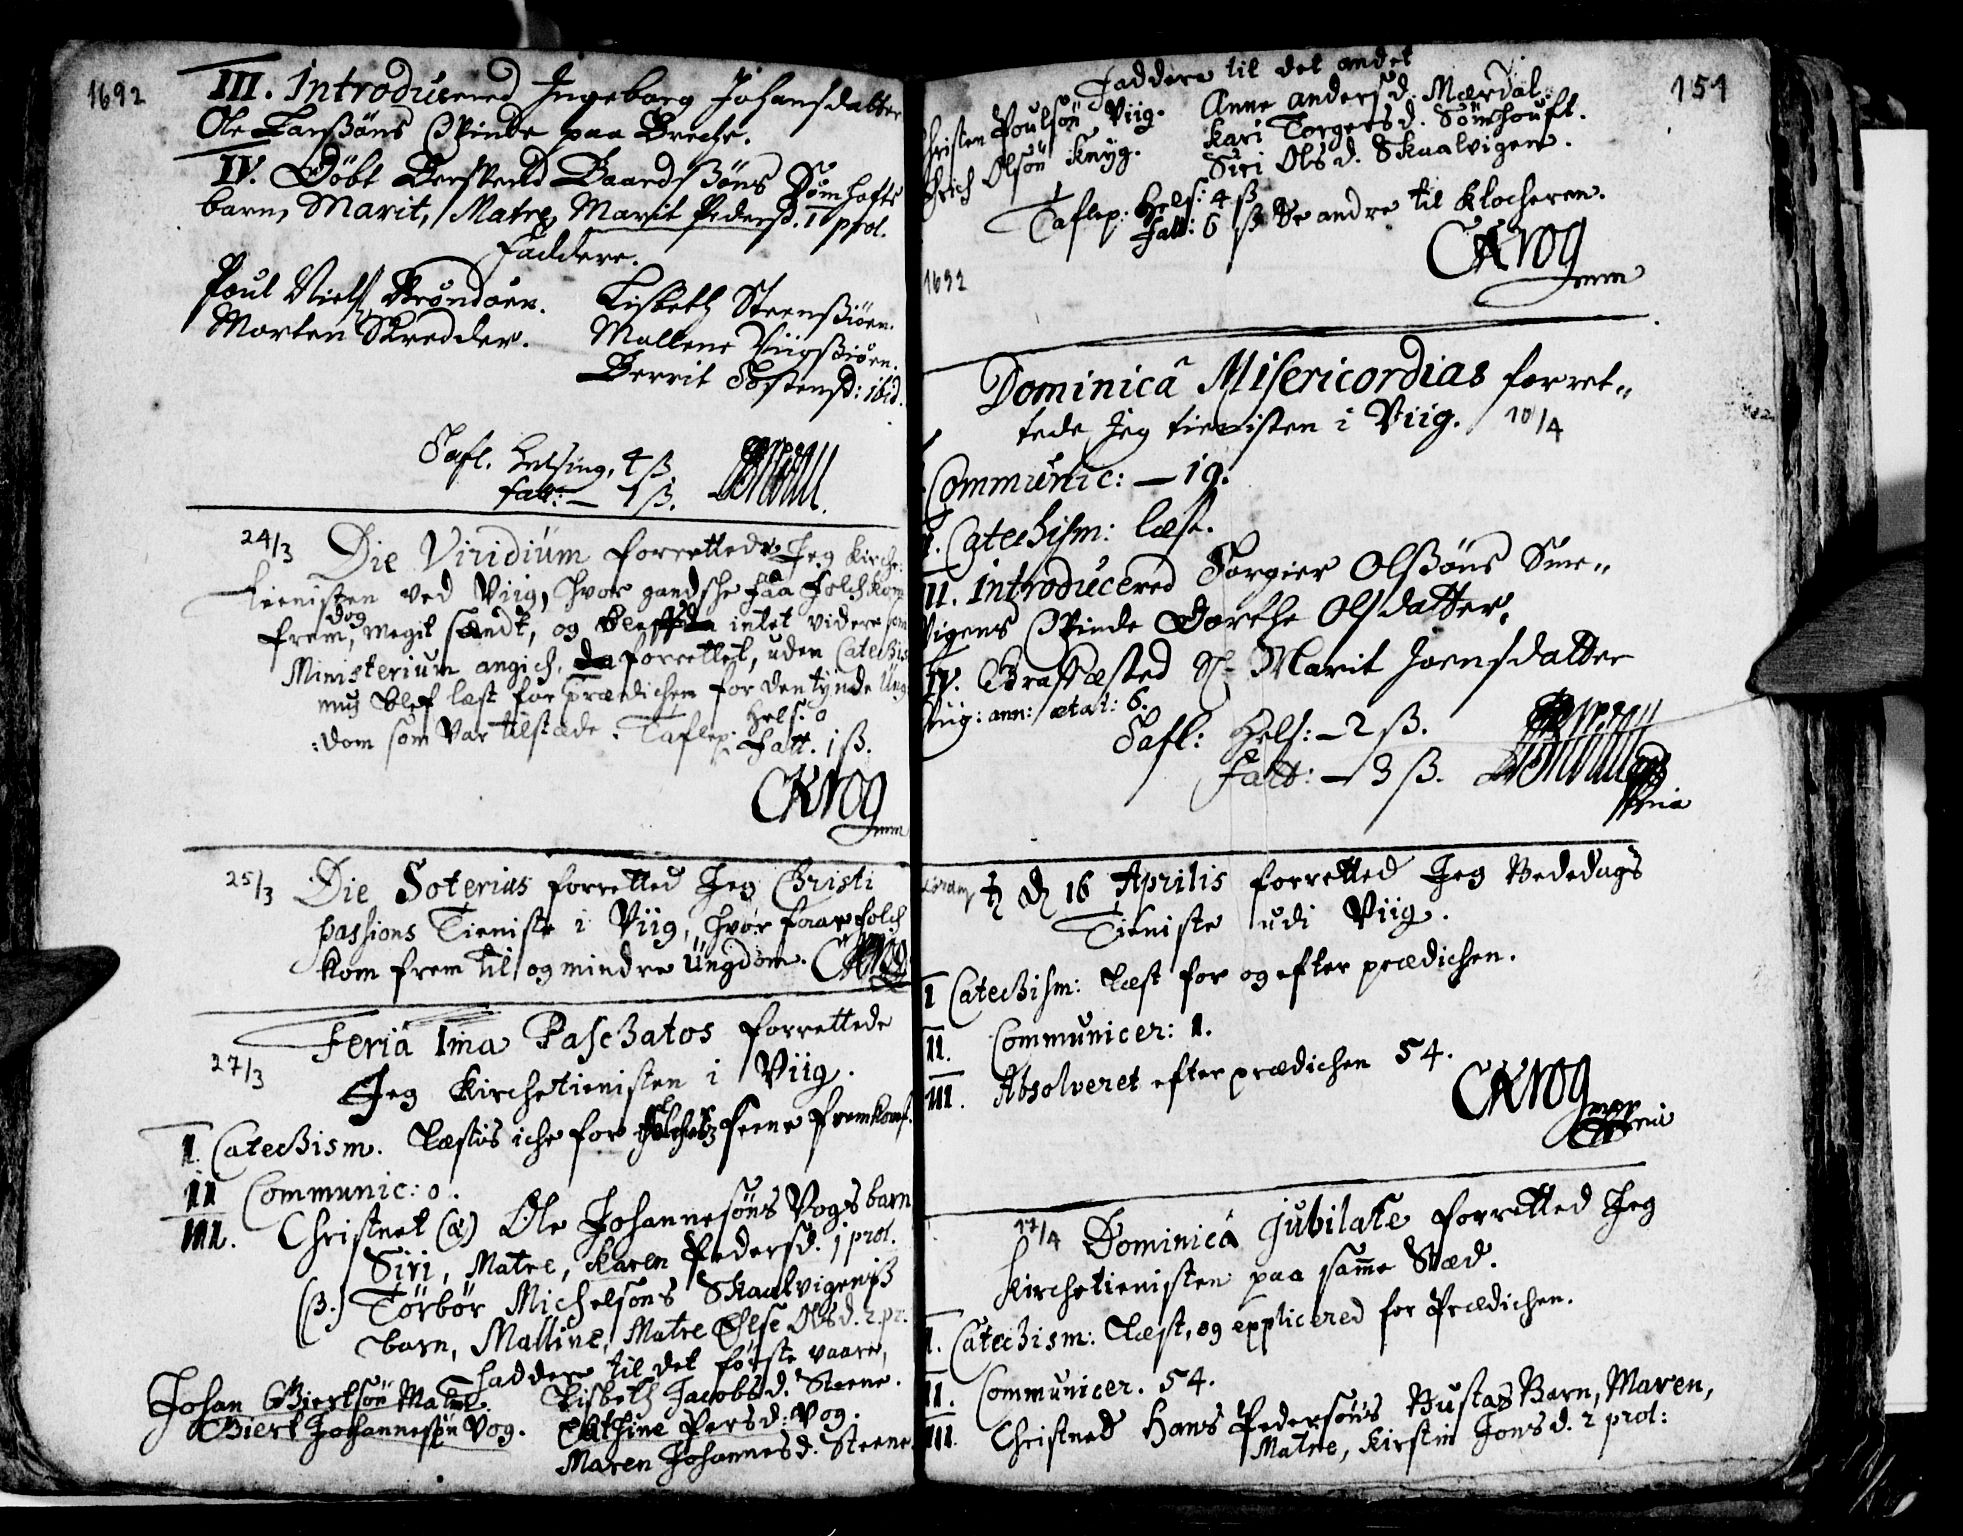 1692
III. Introducered Ingeborg Johansdatter
Ole Larssöns Qvinde paa Breche.
IV. Döbt Berstend Baardssöns Sömhofts
barn, Marit, Matre, Marit Pedersd. 1 prol.
Faddere.
Poul Niels Bröndöen.
Morten Skredder.
Lisbeth Steensiöen.
Mallene Viigsiöen.
Berrit Tostensd: ibid.
Tafl. Helsing, 4 ß.
Fatt: — 1 ß.
24/3 Die Viridium forrettede Jeg Kirche-
tienisten ved Viig, hvor gandsche faa Folch kom
frem, dog megit sendt, og blef intet videre som
Ministerium angich, forrettet, uden Catechis
mus blef læst for prædichen for den tynde Ung
:dom som var tilstæde. Taflep: Hels: 0
Fatt. 1 ß.
CKrog
mm
25/3 Die Soterius forretted Jeg Christi
passions Tieniste i Viig, hvor faae folch
kom frem til, og mindre Ungdom.
27/3 Feriâ Ima Paschatos forrettede
Jeg Kirchetienisten i Viig.
I. Catechism. Læstis iche for folchets seene fremkomst.
II Communic: 0.
III. Christnet (α) Ole Johannesöns Vogs barn
Siri, Matre, Karen Pedersd. 1 prol.
(β.) Törbör Michelsöns Skaalvigens
barn, Malline, Matre Else Olsd. 2. pr:
Faddere til det förste vaare,
Johan Giertsön Malme.
Giert Johannesön Vog.
Lisbeth Jacobsd. Steene.
Cathine Persd: Vog.
Maren Johannesd. Steene
151
Faddere til det andet
Christen Poulsön Viig.
Erich Olsön Knyg.
Anne Andersd. Mærdal.
Kari Torgersd. Sömhouft.
Siri Olsd. Skaalvigen.
Taflep: Hels: 4 ß
Fatt: 6 ß De andre til Klocheren.
CKrog
mm
1692
Dominicâ Misericordias forret-
tede Jeg tienisten i Viig. 10/4
Communic: — 19.
I. Catechism: læst.
II. Introducered Torgier Olssöns Sme-
Vigens Qvinde Dorthe Olsdatter.
IV. Graffæsted Sl. Marit Joensdatter
Viig: ann: ætat: 6.
Tafl: Hels: — 2 ß.
Fatt: — 3 ß.
♄ D 16 Aprilis forretted Jeg Bededags
Tieniste udi Viig.
I Catechism: Læst for og efter prædichen.
II. Communicer: 1.
III. Absolveret efter prædichen 54.
CKrog
17/4 Dominicâ Jubilate forretted Jeg
Kirchetienisten paa samme Stæd.
I. Catechism: Læst, og explicered for Prædichen.
II. Communicer. 54.
III. Christned Hans Pedersöns Bustas Barn, Maren,
Matre, Kirstin Jonsd. 2 prol: